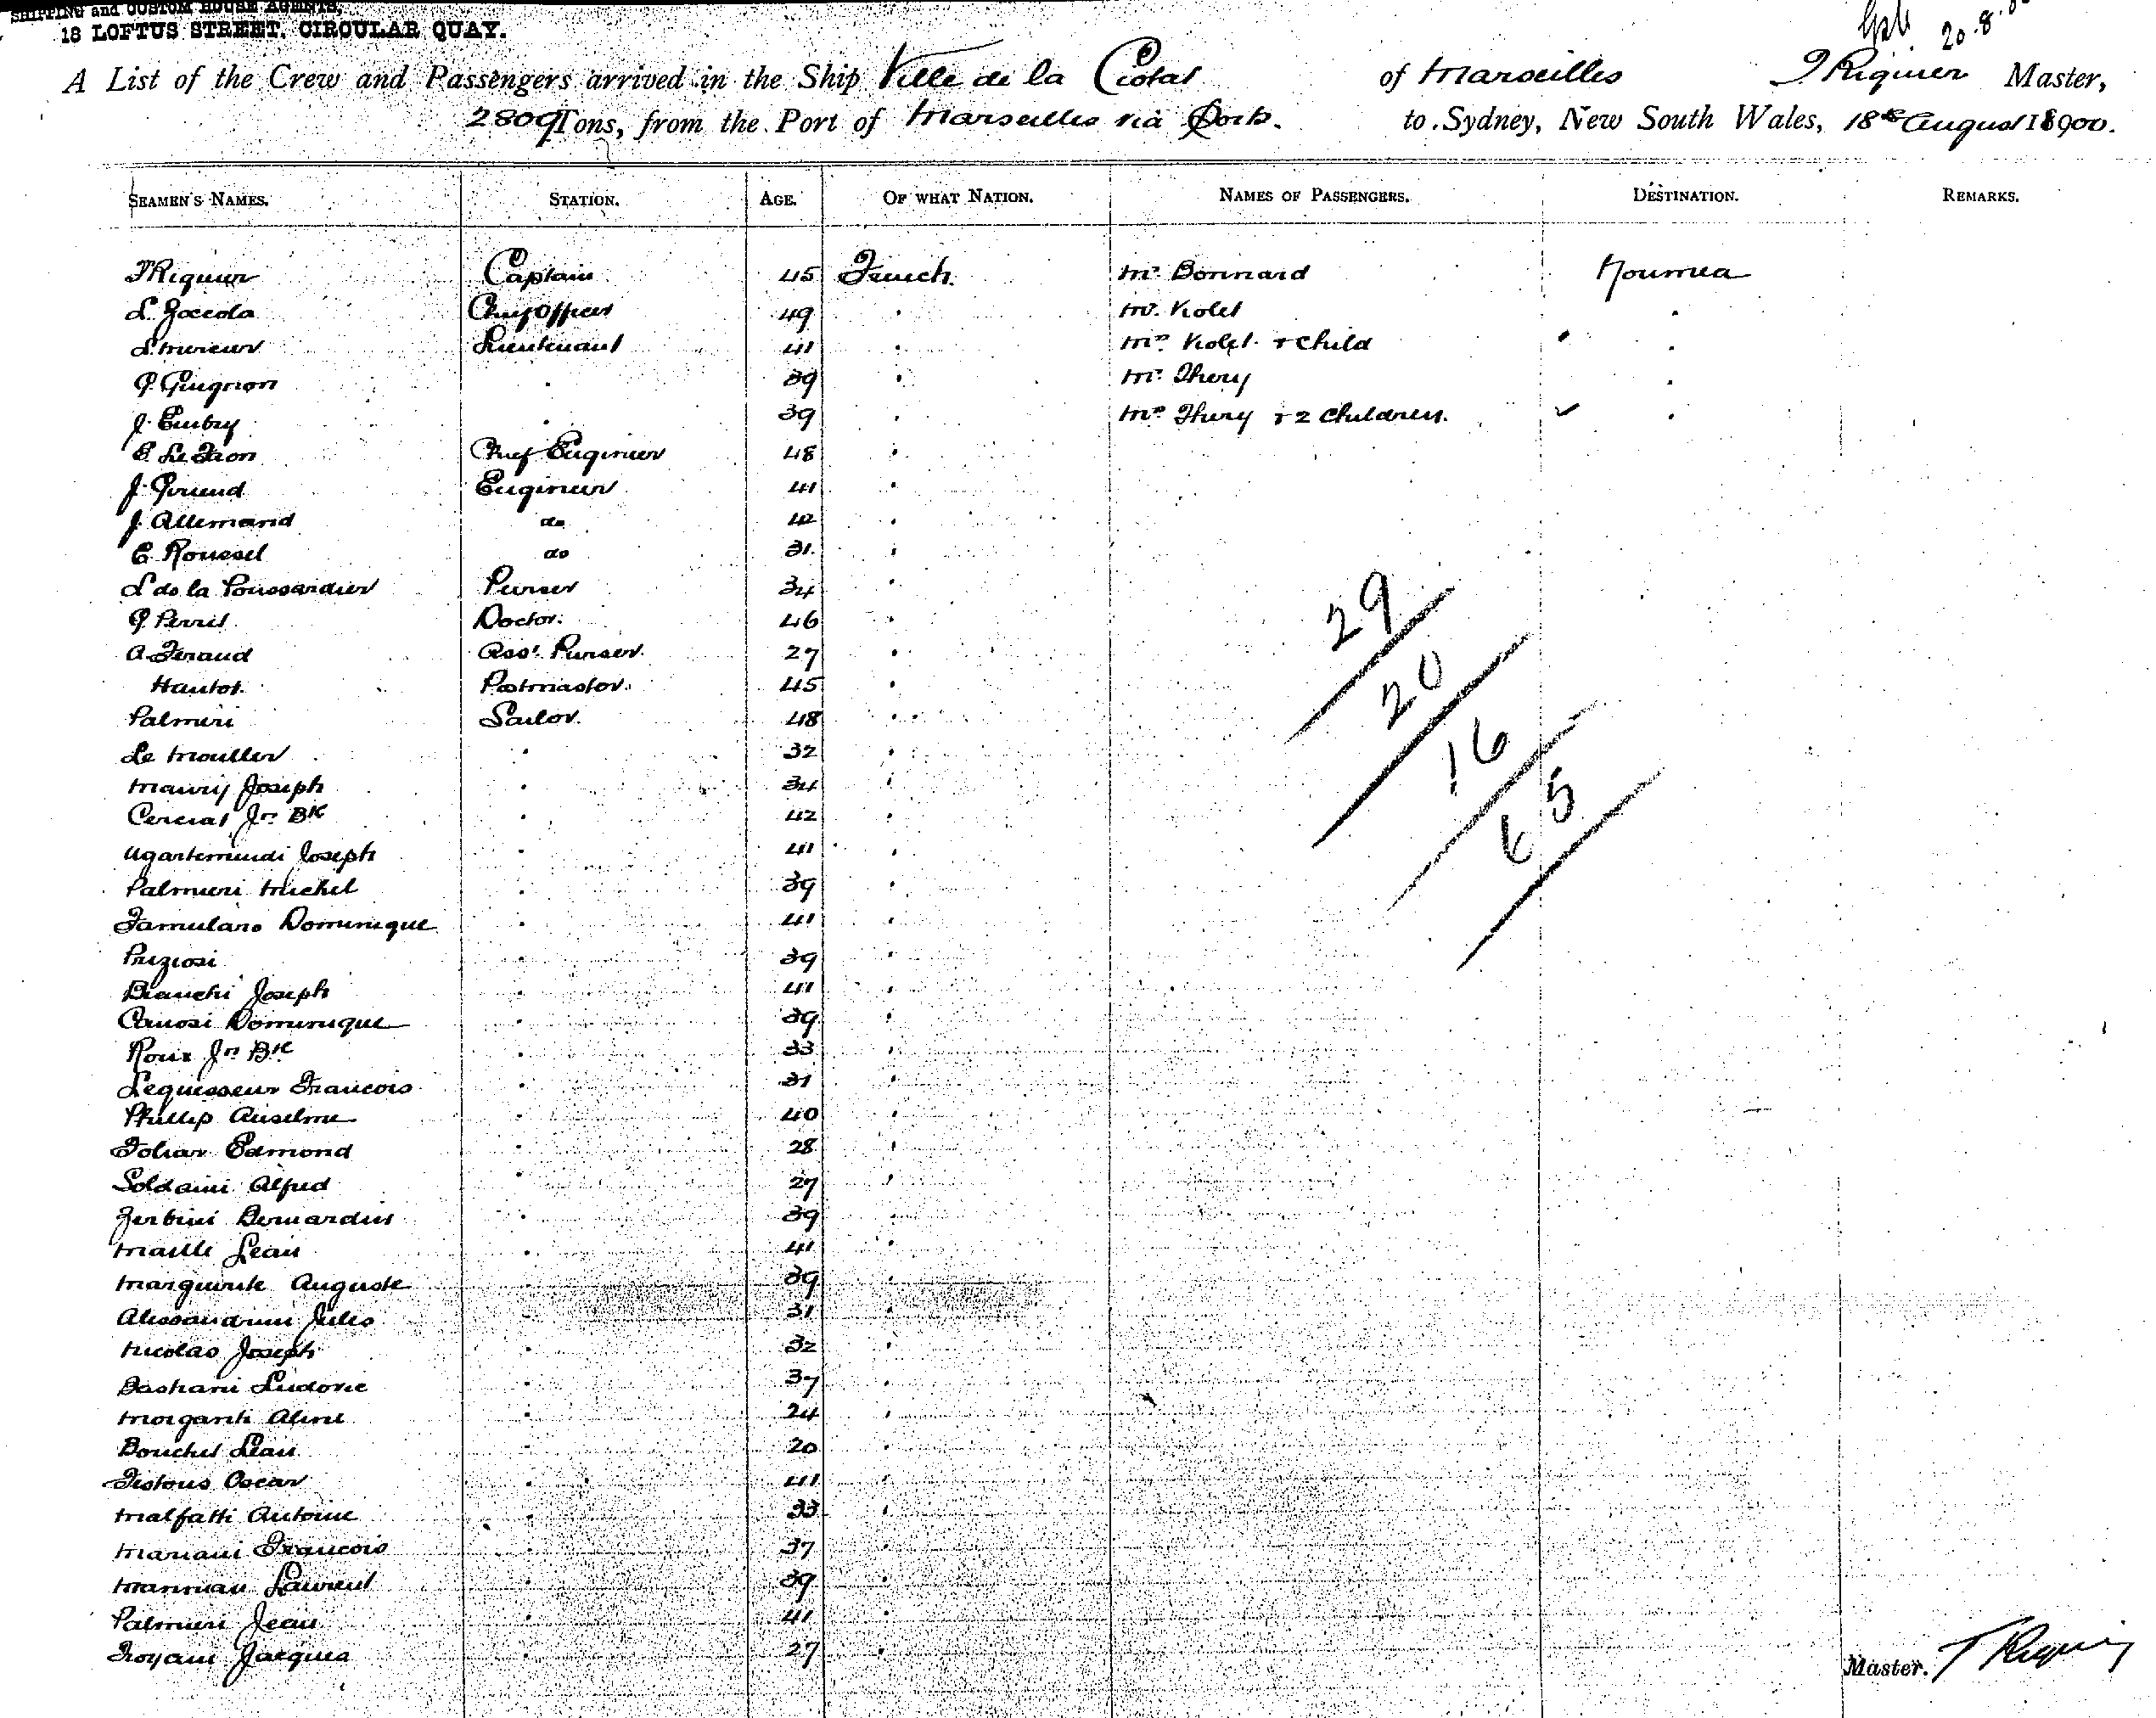 SHIPPING and CUSTOM HOUSE AGENTS,
18 LOFTUS STREET, CIRCULAR QUAY.
20.8.
A List of the Crew and Passengers arrived in the Ship Ville de la Ciotat of Marseilles T Riquier Master,
2809 Tons, from the Port of Marseilles via Ports. to Sydney, New South Wales, 18th August 1900.
SEAMEN'S NAMES. STATION. AGE. OF WHAT NATION. NAMES OF PASSENGERS. DESTINATION. REMARKS.
T Riquier Captain 45 French. Mr. Bonnard Noumea
L. Zoccola Chief Officer 49 " Mr. Violet "
L. Mureur Lieutenant 41 " Mrs. Violet & Child "
P. Guignon " 39 " Mr. Thery "
J. Embry " 39 " Mrs Thery & 2 Children. "
E. Le Fron Chief Engineer 48 "
J. Giraud Engineer 41 "
J. Allemand do 42 "
E. Roussel do 31 "
L de la Poussardier Purser 34 "
P. Perril Doctor. 46 "
A. Feraud Asst. Purser. 27 "
Hautot. Postmaster. 45 "
Palmieri Sailor. 48 "
Le Mouller " 32 "
Maury Joseph " 34 "
Jn. Bte " 42 "
Ugartemendi Joseph " 41 "
Palmieri Michel " 39 "
Famularo Dominique " 41 "
Preziosi " 39 "
Bianchi Joseph " 41 "
Canosi Dominique " 39 "
Roux Jn Bte " 33 "
Lequesseur Francois " 31 "
Phillip Anselme " 40 "
Edmond " 28 "
Soldaini Alfred " 27 "
Zerbini Bernardin " 39 "
Maille Jean " 41 "
Marguerite Auguste " 39 "
Alessandrini Jules " 31 "
Nicolas Joseph " 32 "
Ludovic " 37 "
Morganti " 24 "
Bouchet Jean " 20 "
Testous Oscar " 41 "
Malfatti Antoine " 33 "
Mariani Francois " 37 "
Laurent " 39 "
Palmieri Jean " 41 "
Troyani Jacques 27 "
29
20
16
65
Master. T Riquier